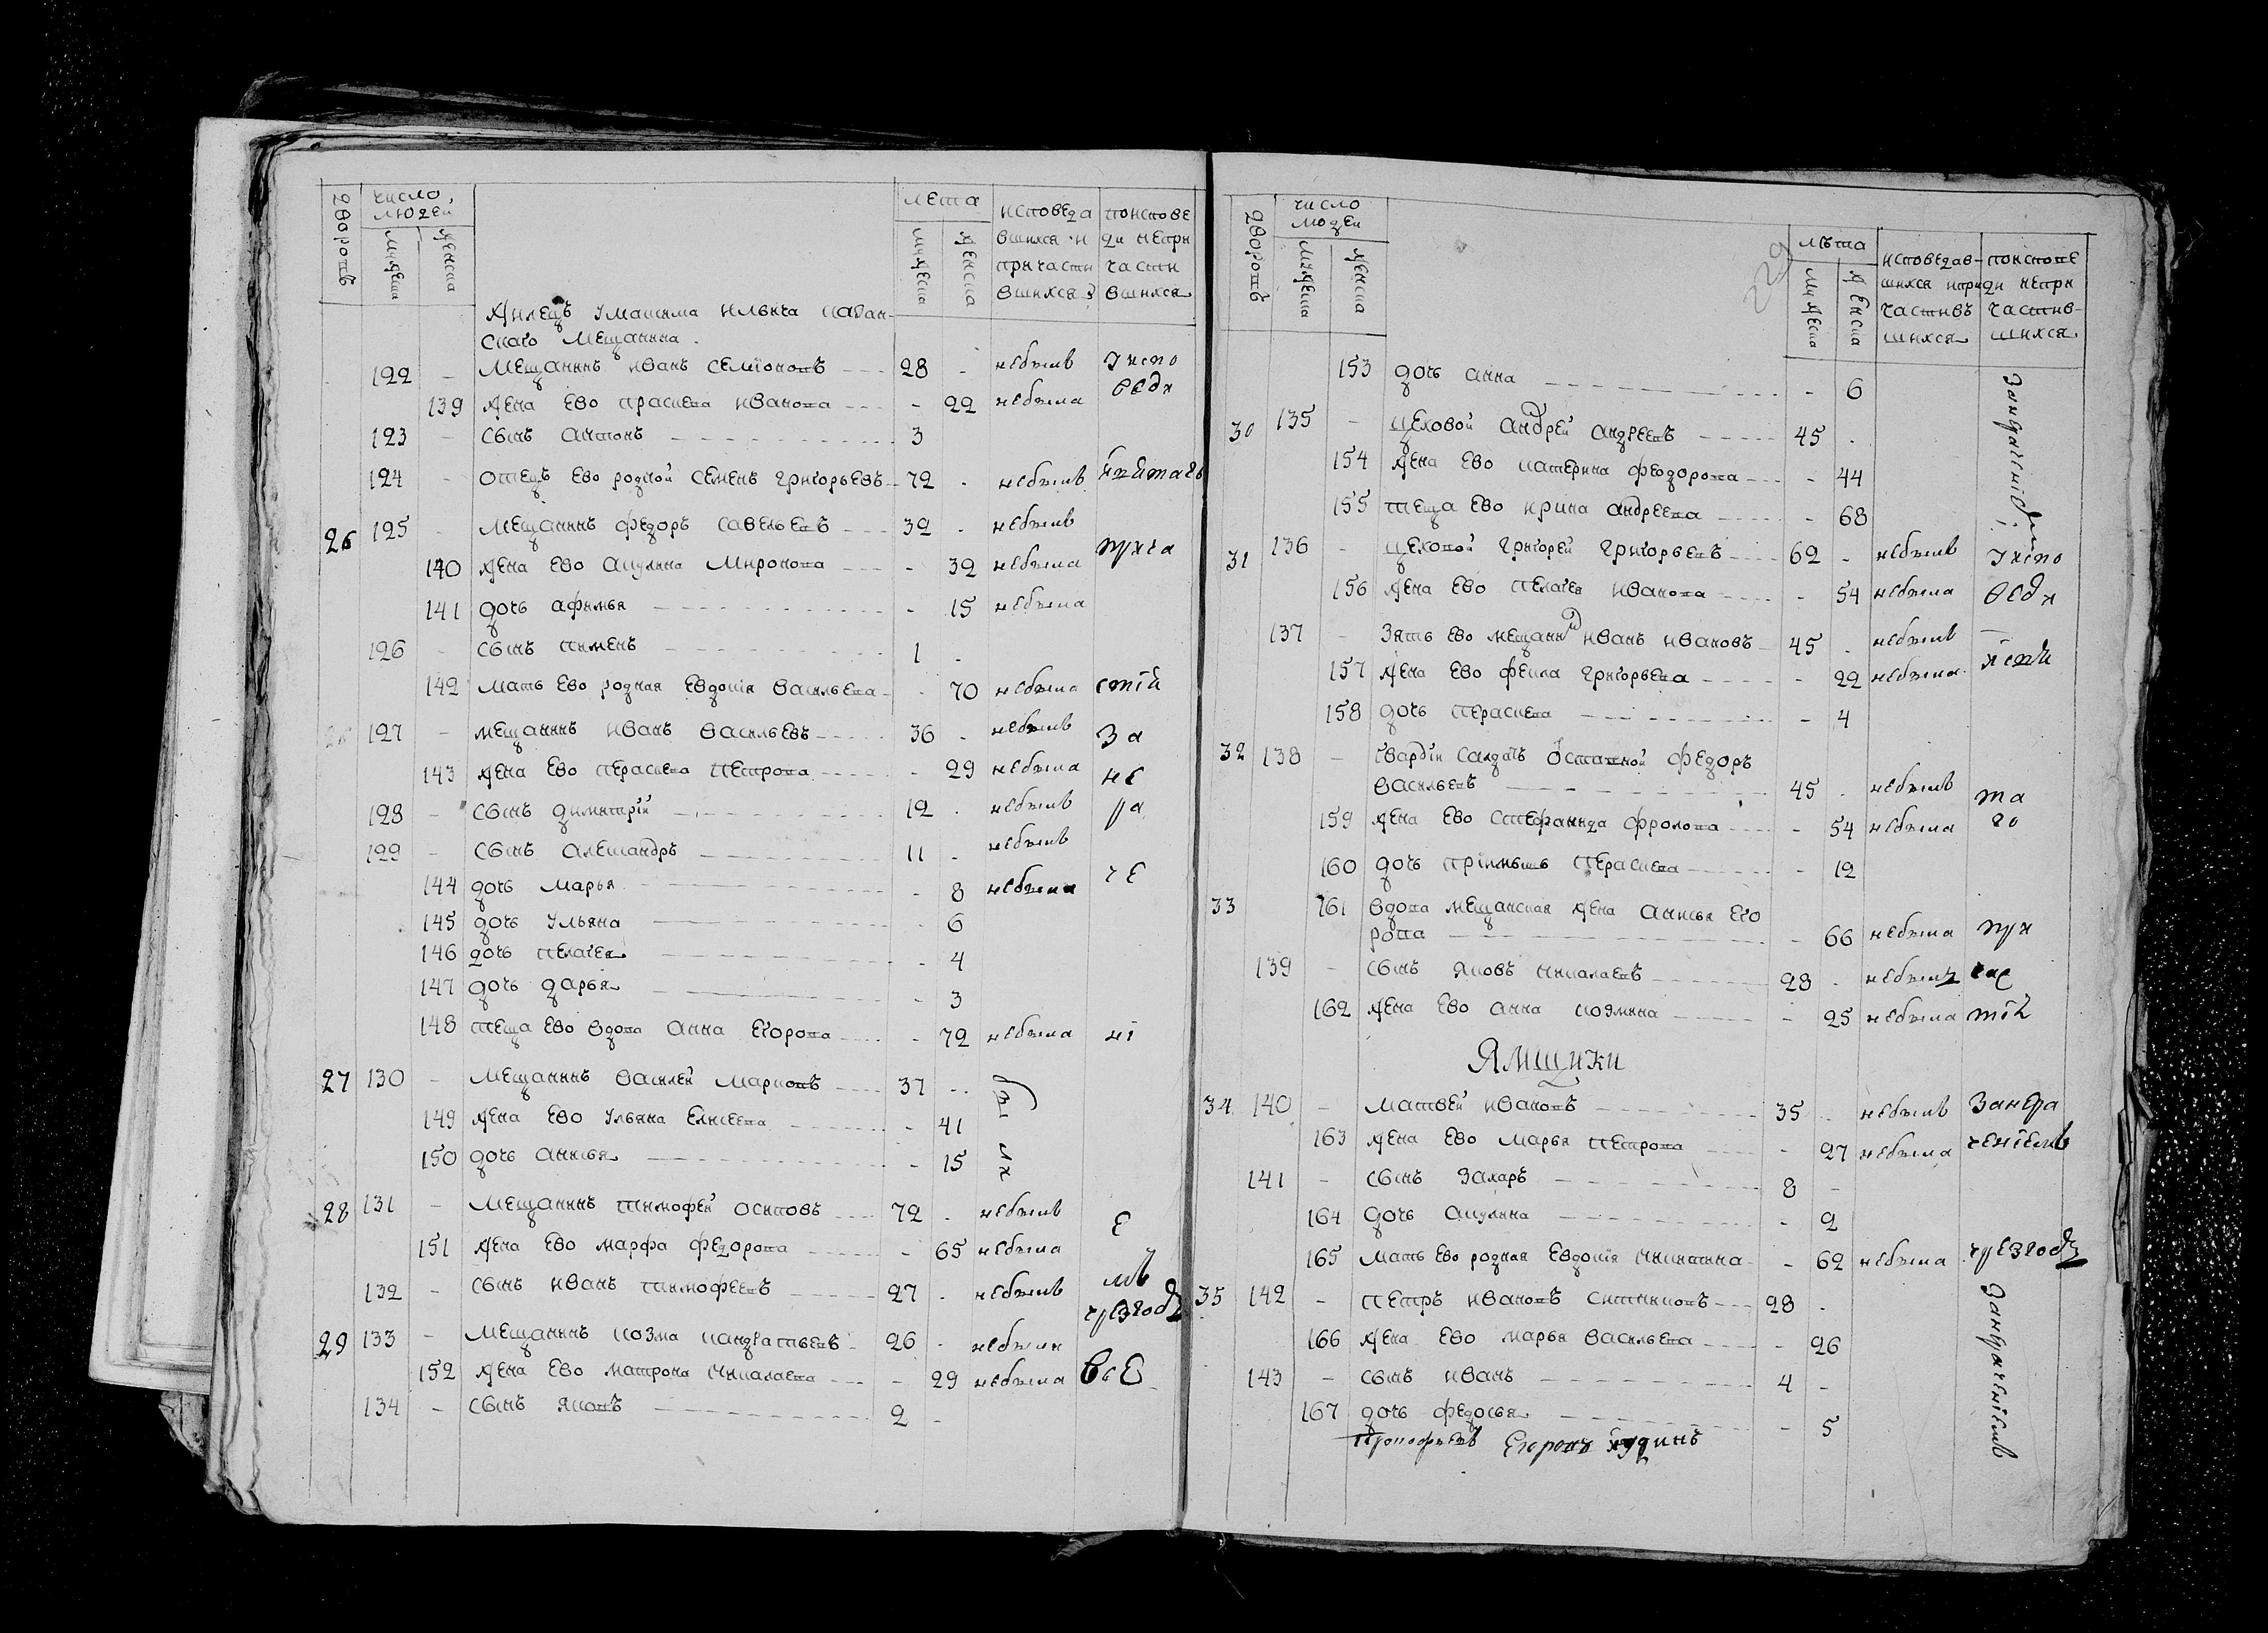 дворовъ
число людей
мужеска
женска
лета
мужеска
женска
исповеда
вшихся и
причасти
вшихся
поиспове
ди непри
части
вшихся
Жилецъ Умаксима Ильича казан-
скаго мещанина
122 - Мещанинъ Иванъ Семионовъ 28 - небылъ
139 Жена ево Праскева Иванова - 22 небыла
123 - Сынъ Антонъ 3
124 - Отецъ ево родной Семенъ Григорьевъ 72 - небылъ
26 125 - Мещанинъ Федоръ Савельевъ 32 - небылъ
140 Жена ево Акулина Миронова - 32 небыла
141 дочь Афимья - 15 небыла
126 - Сынъ Пименъ 1 -
142 Мать ево родная Евдокия Васильева - 70 небыла
127 - Мещанинъ Иванъ Васильевъ 36 - небылъ За
143 Жена ево Пераскева Петрова - 29 небыла не
128 - Сынъ Димитрій 12 - небылъ ра
129 - Сынъ Александръ 11 - небылъ
144 дочь Марья - 8 небыла че
145 дочь Ульяна - 6
146 дочь Пелагея - 4
147 дочь Дарья - 3
148 Теща ево вдова Анна Егорова - 72 небыла ні
27 130 - Мещанинъ Василей Марковъ 37 -
149 Жена ево Ульяна Елисеева - 41
150 дочь Анисья - 15
28 131 - Мещанинъ Тимофей Осиповъ 72 - небылъ е
151 Жена ево Марфа Федорова - 65 небыла
132 - Сынъ Иванъ Тимофеевъ 27 - небылъ мъ
чрезгодъ
29 133 - Мещанинъ Козма Панкратьевъ 26 - небылъ
152 Жена ево Матрона Николаева - 29 небыла все
134 - Сынъ Яковъ 2 -
229
дворовъ
число людей
мужеска
женска
лѣта
мужеска
женска
исповедав-
шихся и при
частивъ
шихся
поиспове
ди непри
частив-
шихся
153 дочь Анна - 6
30 135 - Цеховой Андрей Андреевъ 45 -
154 Жена ево Катерина Феодорова - 44
155 Теща ево Ирина Андреева - 68
31 136 - Цеховой Григорей Григорьевъ 62 - небылъ Уиспо
156 Жена ево Пелагея Иванова - 54 небыла веди
137 - Зять ево мещанин Иванъ Ивановъ 45 - небылъ
157 Жена ево Фекла Григорьева - 22 небыла
158 дочь Пераскева - 4
32 138 - Гвардіи салдатъ Оставной Федоръ
Васильевъ 45 - небылъ та
159 Жена ево Стефанида Фролова - 54 небыла го
160 дочь Пріимышъ Пераскева - 12
33 161 Вдова мещанская жена Анисья Его
рова - 66 небыла при
139 - Сынъ Яковъ Николаевъ 28 - небылъ час
162 Жена ево Анна Козмина - 25 небыла тій
Ямщики
34 140 - Матвей Ивановъ 35 - небылъ Занера
163 Жена ево Марья Петрова - 27 небыла ченіемъ
141 - Сынъ Захаръ 8 -
164 дочь Акулина - 2
165 Мать ево родная Евдокия Никитина - 62 небыла чрезгодъ
35 142 - Петръ Ивановъ Ситниковъ 28 -
166 Жена ево Марья Васильева - 26
143 - Сынъ Иванъ 4 -
167 дочь Федосья - 5
Занераченіемъ